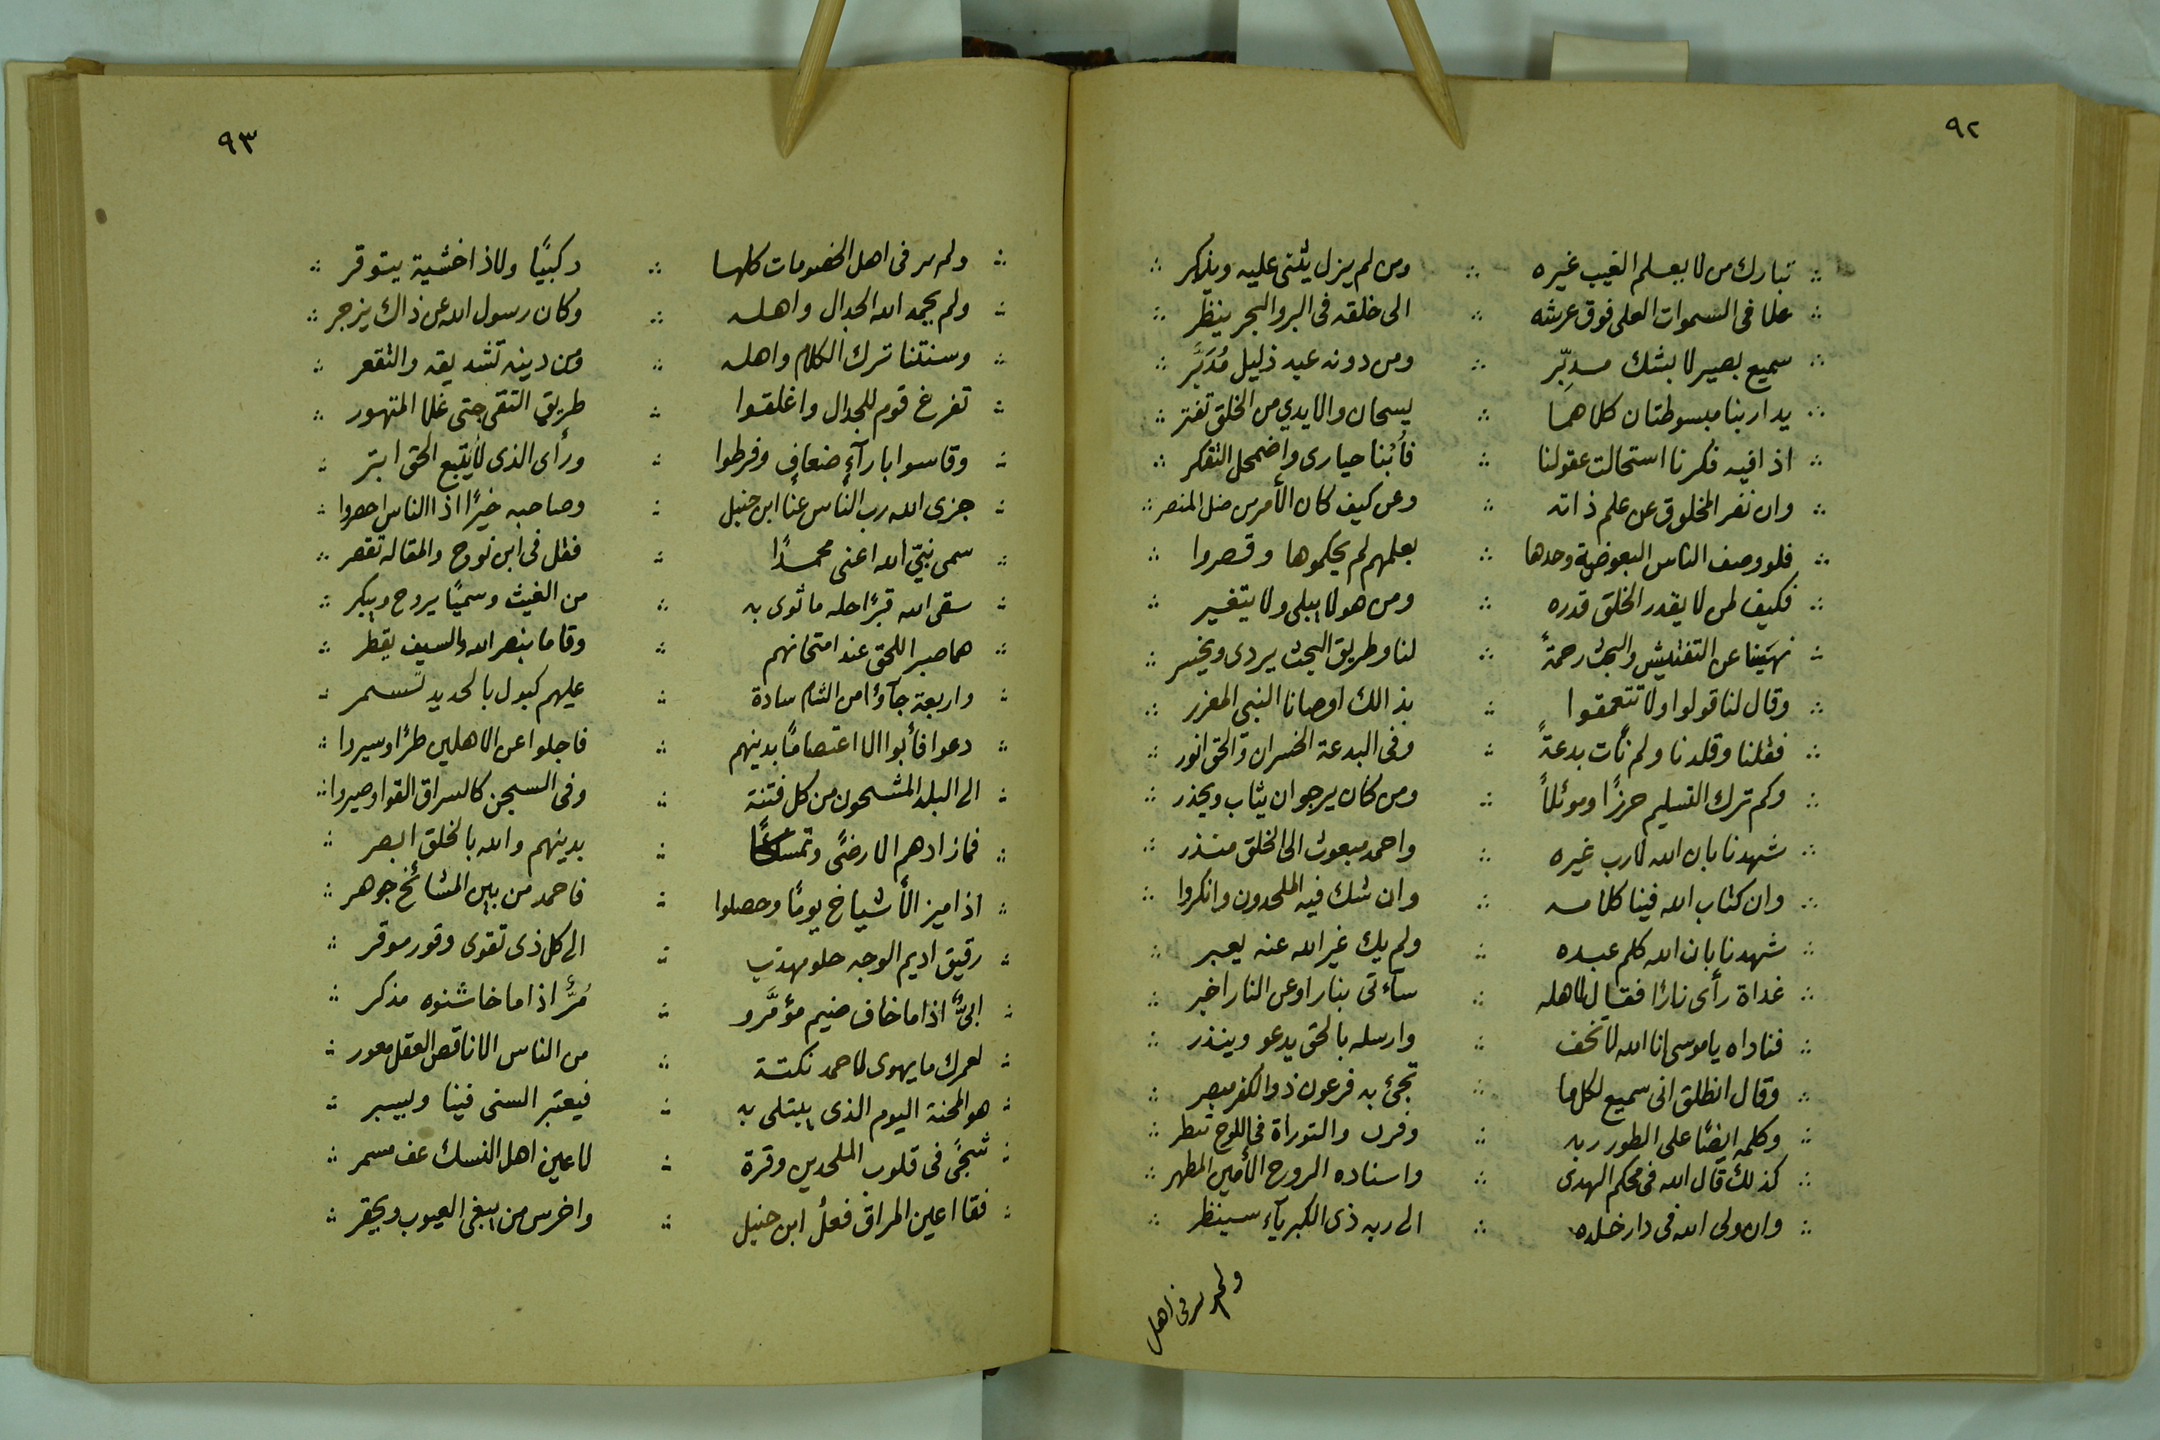 ٩٢
تبارك من لا يعلم الغيب غيره ومن لم يزل يثنى عليه ويذكر
علا فى السموات العلى فوق عرشه الى خلقه فى البر والبحر ينظر
سميع بصير لا بشك مدبِّر ومن دونه عبد ذليل مُدَبَّر
يدا ربنا مبسوطتان كلاهما يسحان والايدي من الخلق تقتر
اذا فيه فكرنا استحالت عقولنا فأُبْنا حيارى واضمحل التفكر
وان نفر المخلوق عن علم ذاته وعن كيف كان الأمر من ضل المنصر
فلو وصف الناس البعوضة وحدها بعلمهم لم يحكموها وقصروا
فكيف لمن لا يقدر الخلق قدره ومن هو لا يبلى ولا يتغير
نهينا عن التفتيش والبحث رحمةً لنا وطريق البحث يردى ويخسر
وقال لنا قولوا ولا تتعمقوا بذالك اوصانا النبى المعزر
فقلنا وقلدنا ولم نأت بدعةً وفى البدعة الخسران والحق انور
وكم ترك التسليم حرزًا وموئلاً ومن كان يرجو ان يثاب ويحذر
شهدنا بان الله لا رب غيره واحمد مبعوث الى الخلق منذر
وان كتاب الله فينا كلامه وان شك فيه الملحدون وانكروا
شهدنا بان الله كلم عبده ولم يك غير الله عنه يعبر
غداة رأى نارًا فقال لاهله سآءتى بنار او عن النار اخبر
فناداه يا موسى انا الله لا تخف وارسله بالحق يدعو وينذر
وقال انطلق انى سميع لكل ما تجئ به فرعون ذو الكفر مبصر
وكلمه ايضًا على الطور ربه وقرب والتوراة فى اللوح تسطر
كذلك قال الله فى محكم الهدى واسناده الروح الأمين المطهر
وان ولى الله فى دار خلده الى ربه ذى الكبريآء سينظر
ولم ير فى اهل
٩٣
ولم ير فى اهل الخصومات كلها ركبيًا ولا ذا خشية يتوقر
ولم يحمد الله الجدال واهله وكان رسول الله عن ذاك يزجر
وسنتنا ترك الكلام واهله ومن دينه تشديقه والتقعر
تفرغ قوم للجدال واغلقوا طريق التقى حتى غلا المتهور
وقاسوا بارآءٍ ضعاف وفرطوا ورأى الذى لا يتبع الحق ابتر
جزى الله رب الناس عنا ابن حنبل وصاحبه خيرًا اذا الناس احصروا
سمى نبيّ الله اعنى محمدًا فقل فى ابن نوح والمقاله تقصر
سقى الله قبرًا حله ما ثوى به من الغيث وسميًا يروح ويبكر
هما صبرا للحق عند امتحانهم وقاما بنصر الله والسيف يقطر
واربعة جآؤا من الشام سادة عليهم كبول بالحديد تسمر
دعوا فأبوا الا اعتصامًا بدينهم فاجلوا عن الاهلين طرًا وسيروا
الى البلد المشحون من كل فتنة وفى السجن كالسراق القوا وصيروا
فما زادهم الا رضًى وتمسكا بدينهم والله بالخلق ابصر
اذا ميز الأشياخ يومًا وحصلوا فاحمد من بين المشائخ جوهر
رقيق اديم الوجه حلو مهذب الى كل ذى تقوى وقور موقر
ابىٌّ اذا ما خاف ضيم مؤمَّر و مُرٌّ اذا ما خاشنوه مذكر
لعمرك ما يهوى لاحمد نكتة من الناس الا ناقص العقل معور
هو المحنة اليوم الذى يبتلى به فيعتبر السنى فينا ويسبر
شجًى فى قلوب الملحدين وقرة لاعين اهل النسك عف مسمر
فقا اعين المراق فعلُ ابن حنبل واخرس من يبغى العيوب ويحقر